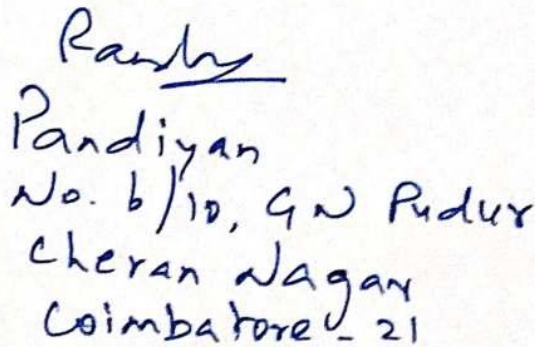 Pandiyan
No. 6/10, G N Pudur
Cheran Nagar
Coimbatore - 21